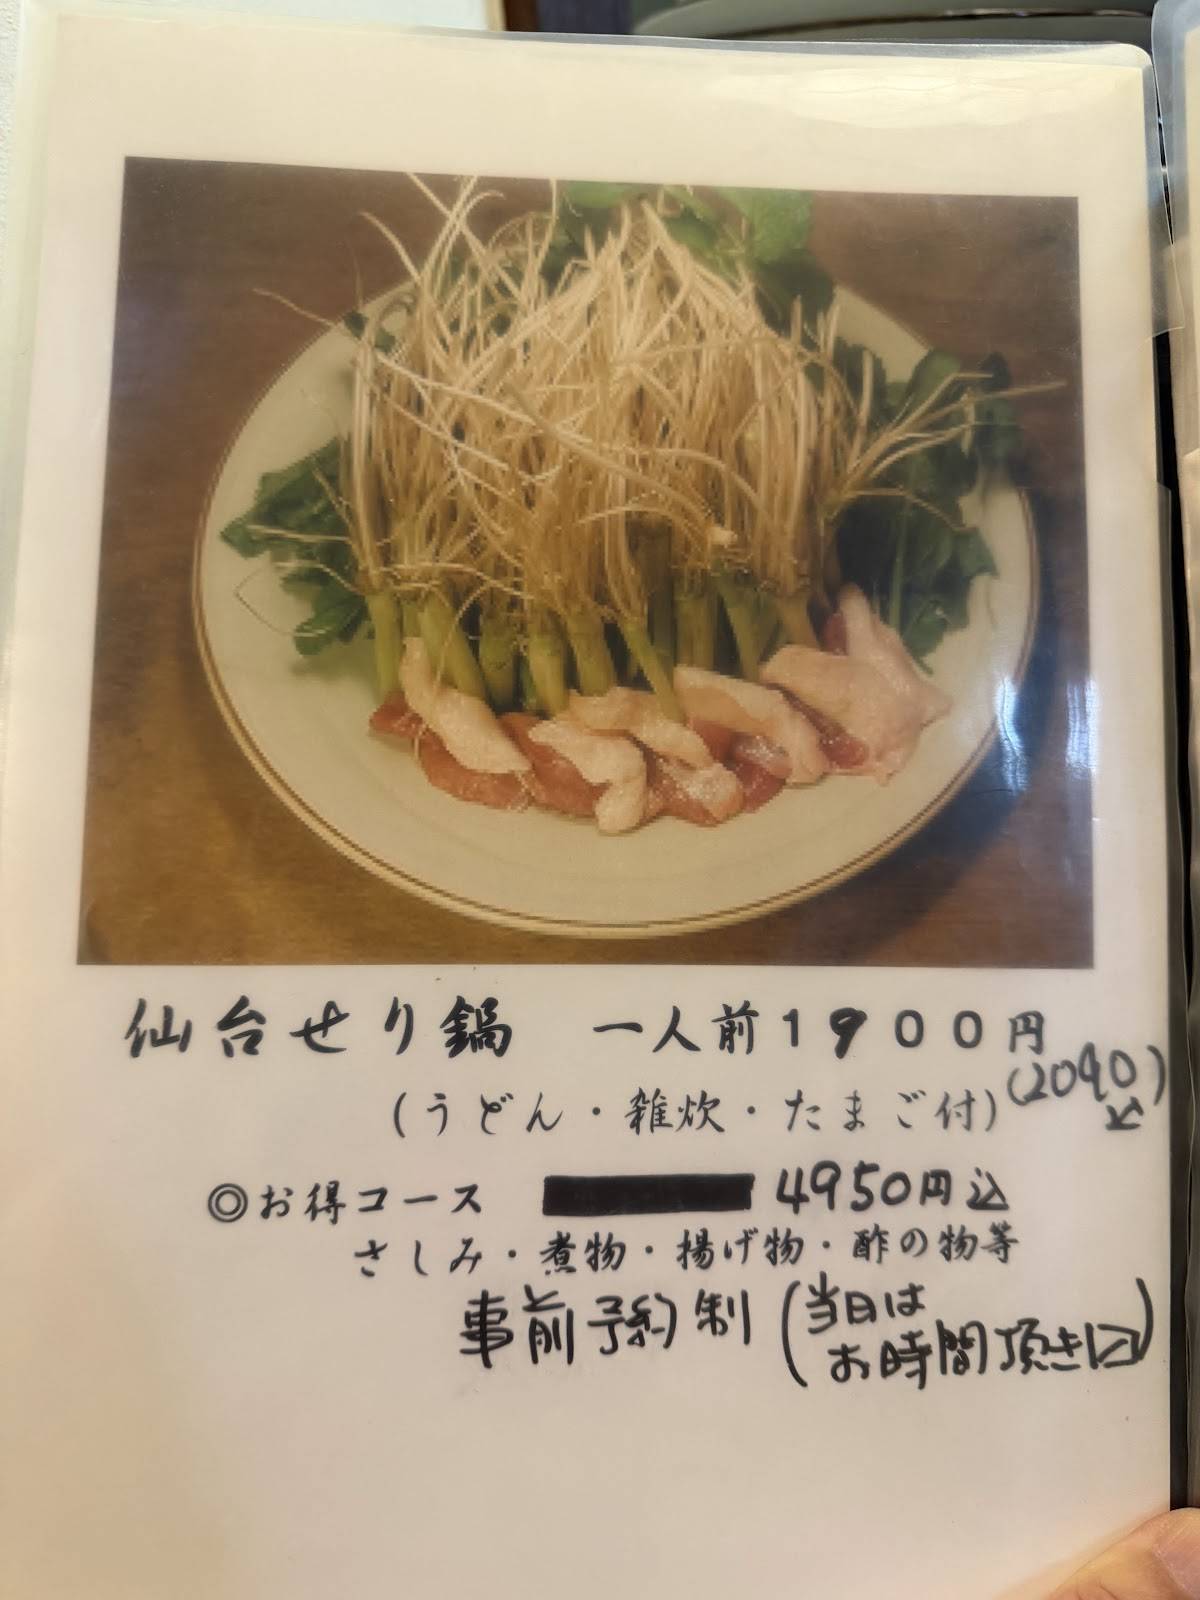 仙台せり鍋 一人前1900円
(2090込)
(うどん・雑炊・たまご付)
◎お得コース 4950円込
さしみ・煮物・揚げ物・酢の物等
事前予約制(当日は
お時間頂きます)